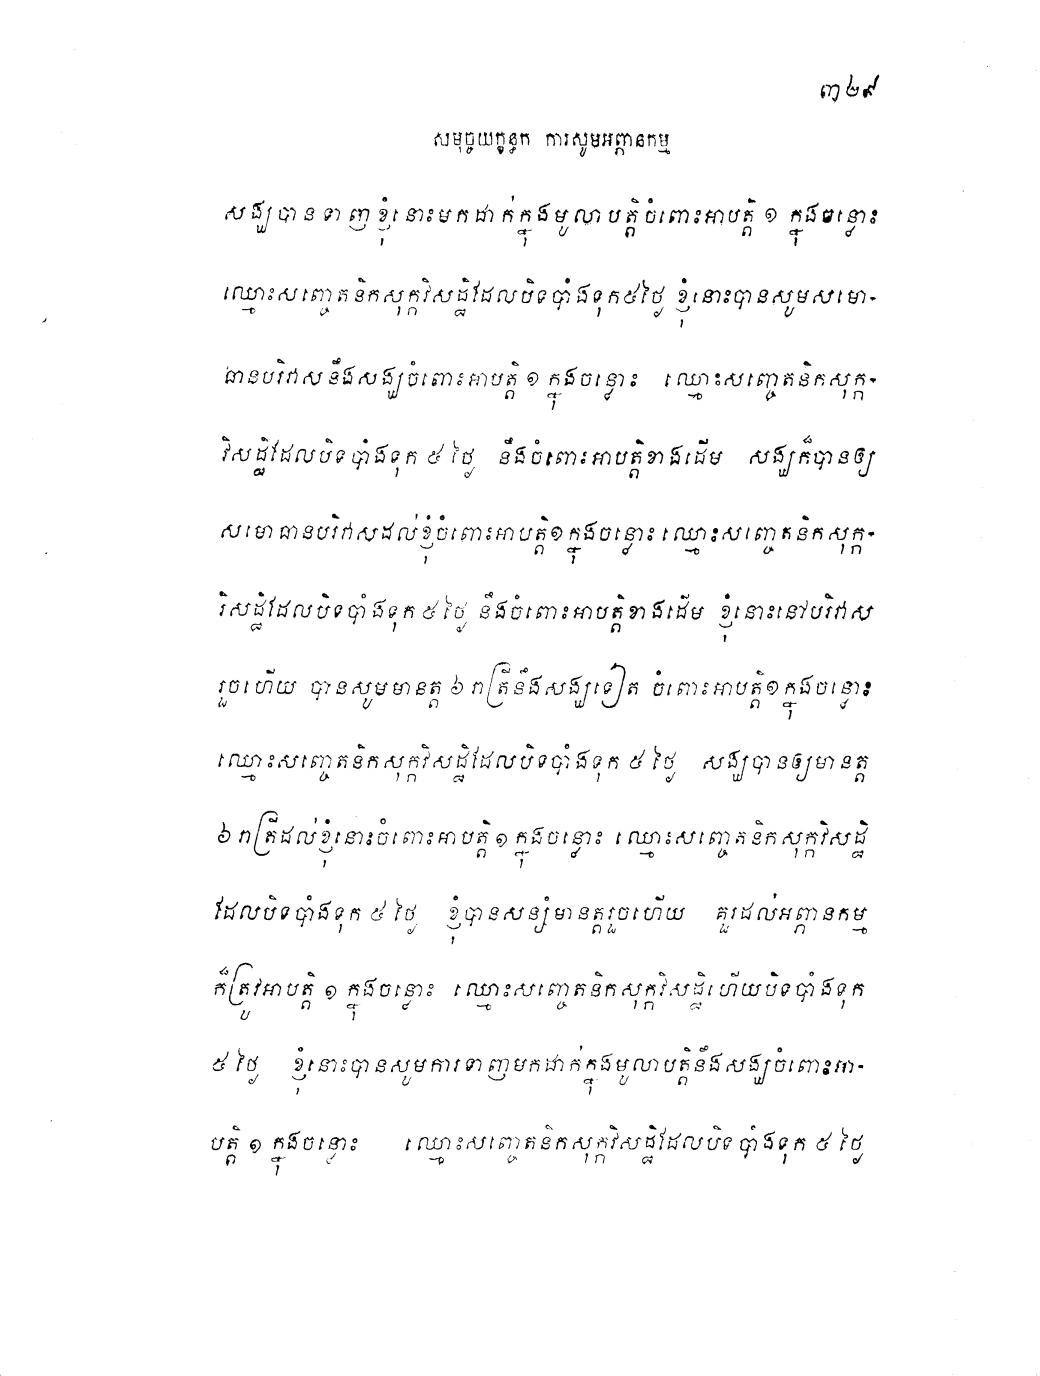 ៣២៩
សមុច្ចយក្ខន្ធក ការសូមអព្ភានកម្ម
សង្ឃបានទាញខ្ញុំនោះមកដាក់ក្នុងមូលាបត្តិចំពោះអាបត្តិ ១ ក្នុងចន្លោះ
ឈ្មោះសញ្ចេតនិកសុក្កវិសដ្ឋិដែលបិទបាំងទុក៥ថ្ងៃ ខ្ញុំនោះបានសូមសមោ-
ធានបរិវាសនឹងសង្ឃចំពោះអាបត្តិ ១ ក្នុងចន្លោះ ឈ្មោះសញ្ចេតនិកសុក្ក-
វិសដ្ឋិដែលបិទបាំងទុក ៥ ថ្ងៃ នឹងចំពោះអាបត្តិខាងដើម សង្ឃក៏បានឲ្យ
សមោធានបរិវាសដល់ខ្ញុំចំពោះអាបត្តិ១ក្នុងចន្លោះ ឈ្មោះសញ្ចេតនិកសុក្ក-
វិសដ្ឋិដែលបិទបាំងទុក ៥ ថ្ងៃ នឹងចំពោះអាបត្តិខាងដើម ខ្ញុំនោះនៅបរិវាស
រួចហើយ បានសូមមានត្ត ៦ រាត្រីនឹងសង្ឃទៀត ចំពោះអាបត្តិ១ក្នុងចន្លោះ
ឈ្មោះសញ្ចេតនិកសុក្កវិសដ្ឋិដែលបិទបាំងទុក ៥ ថ្ងៃ សង្ឃបានឲ្យមានត្ត
៦ រាត្រីដល់ខ្ញុំនោះចំពោះអាបត្តិ ១ ក្នុងចន្លោះ ឈ្មោះសញ្ចេតនិកសុក្កវិសដ្ឋិ
ដែលបិទបាំងទុក ៥ ថ្ងៃ ខ្ញុំបានសន្សំមានត្តរួចហើយ គួរដល់អព្ភានកម្ម
ក៏ត្រូវអាបត្តិ ១ ក្នុងចន្លោះ ឈ្មោះសញ្ចេតនិកសុក្កវិសដ្ឋិហើយបិទបាំងទុក
៥ ថ្ងៃ ខ្ញុំនោះបានសូមការទាញមកដាក់ក្នុងមូលាបត្តិនឹងសង្ឃចំពោះអា-
បត្តិ ១ ក្នុងចន្លោះ ឈ្មោះសញ្ចេតនិកសុក្កវិសដ្ឋិដែលបិទបាំងទុក ៥ ថ្ងៃ